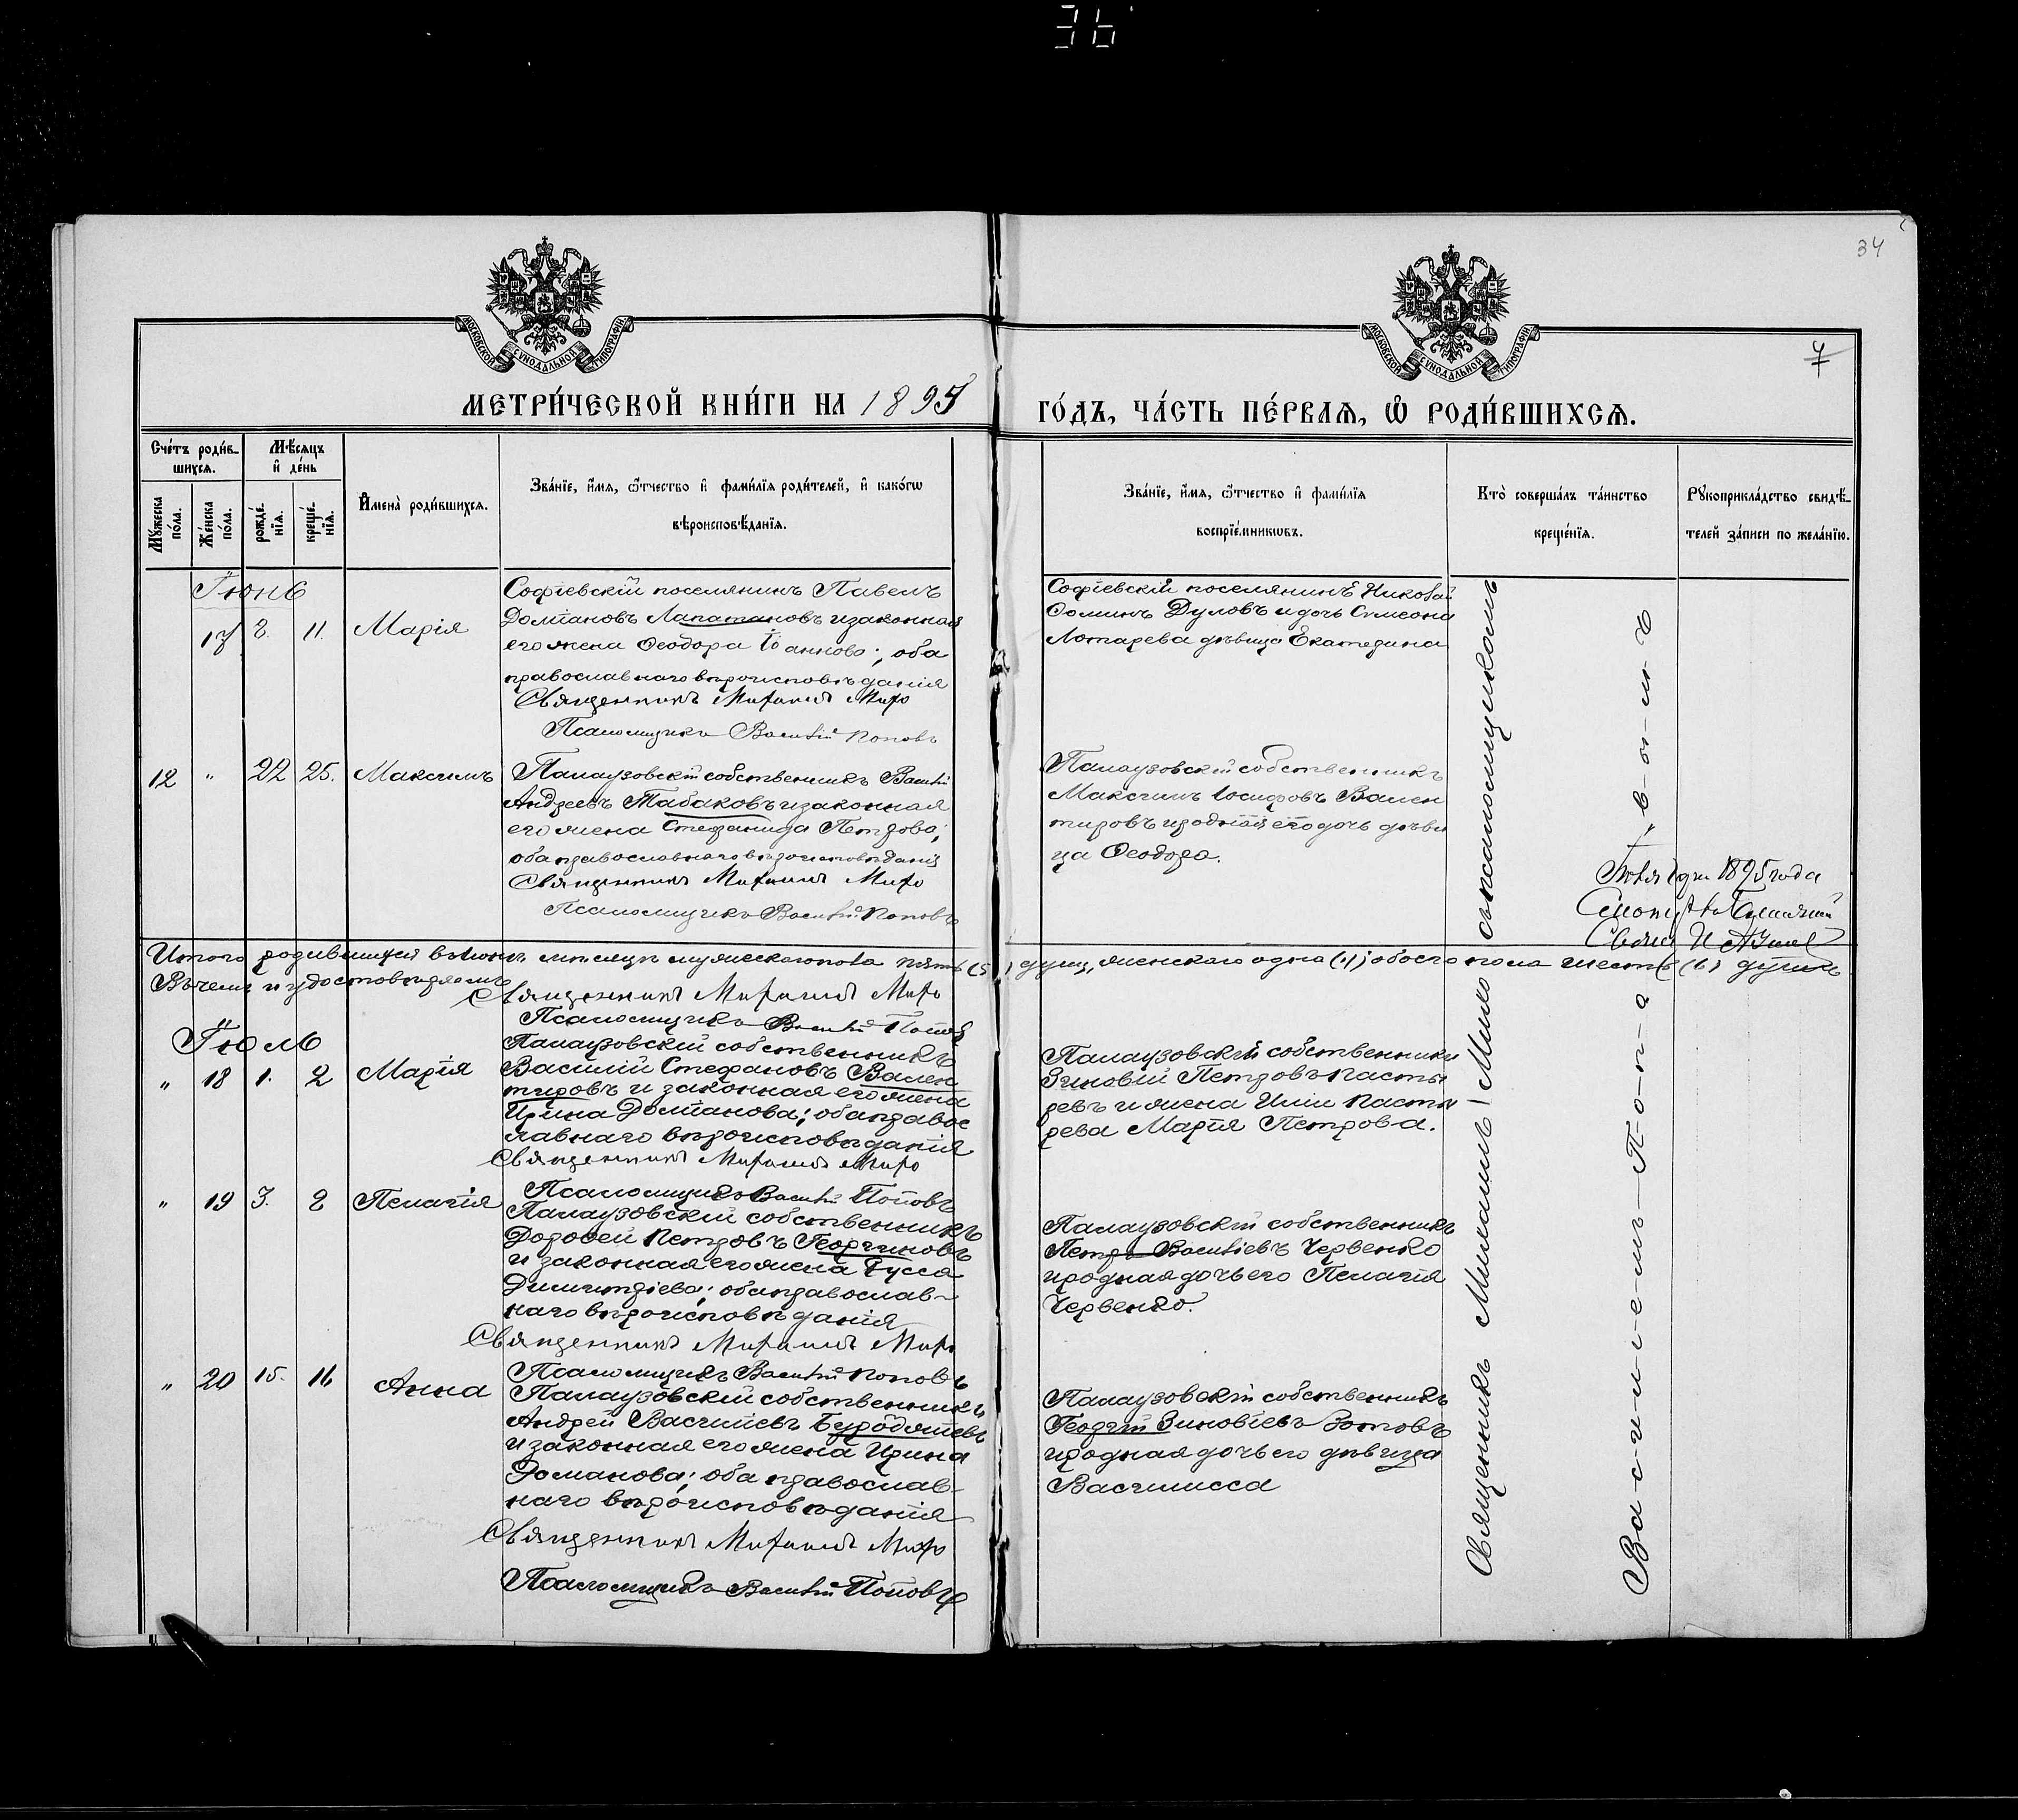 36
34
7
МОСКОВСКОЙ СѴНОДАЛЬНОЙ ТИПОГРАФІИ
МОСКОВСКОЙ СѴНОДАЛЬНОЙ ТИПОГРАФІИ
МЕТРИ́ЧЕСКОЙ КНИ́ГИ НА 1895
ГО́ДЪ, ЧА́СТЬ ПЕ́РВАѦ, Ѽ РОДИ́ВШИХСѦ.
Сче́тъ роди́в-
шихсѧ.
Мѣ́сѧцъ
и҆ де́нь
Мꙋ́жеска
по́ла.
Же́нска
по́ла.
рожде́-
нїѧ.
креще́-
нїѧ.
И҆мена̀ роди́вшихсѧ.
Зва́нїе, и҆́мѧ, ѻ҆́тчество и҆ фами́лїѧ роди́телей, и҆ како́гѡ
вѣроисповѣ́данїѧ.
Зва́нїе, и҆́мѧ, ѻ҆́тчество и҆ фами́лїѧ
воспрїе́мникѡвъ.
Кто̀ соверша́лъ та́инство
креще́нїѧ.
Рꙋкоприкла́дство свидѣ́-
телей за́писи по жела́нїю.
Іюнь
17 2. 11. Марія
Софіевскій поселянинъ Павелъ
Доміановъ Лапатановъ и законная
его жена Ѳеодора Іоаннова; оба
православнаго вѣроисповѣданія
Священникъ Михаилъ Михо
Псаломщикъ Василій Поповъ
Софіевскій поселянинъ Николай
Ѳоминъ Дуловъ и дочь Симеона
Лотарева дѣвица Екатерина
12 " 22 25. Максимъ
Палаузовскій собственникъ Василій
Андреевъ Табаковъ и законная
его жена Стефанида Петрова;
оба православнаго вѣроисповѣданія
Священникъ Михаилъ Михо
Псаломщикъ Василій Поповъ
Палаузовскій собственникъ
Максимъ Іосифовъ Вален
тировъ и родная его дочь дѣви
ца Ѳеодора.
1895 года
Итого родившихся въ Іюнѣ мѣсяцѣ мужескаго пола пять (5) душъ, женскаго одна (1); обоего пола шесть (6) душъ
Въ чемъ и удостовѣряемъ
Священникъ Михаилъ Михо
Псаломщикъ Василій Поповъ
Іюль
" 18 1. 2 Марія
Палаузовскій собственникъ
Василій Стефановъ Вален
тировъ и законная его жена
Ирина Доміанова; оба правос
лавнаго вѣроисповѣданія
Священникъ Михаилъ Михо
Псаломщикъ Василій Поповъ
Палаузовскій собственники
Зиновій Петровъ Пасты
ревъ и жена Иліи Пасты
рева Марія Петрова.
" 19 3. 8 Пелагія
Палаузовскій собственникъ
Дороѳей Петровъ Георгиновъ
и законная его жена Русса
Димитріева; оба православ-
наго вѣроисповѣданія
Священникъ Михаилъ Михо
Псаломщикъ Василій Поповъ
Палаузовскій собственникъ
Петръ Василіевъ Червенко
и родная дочь его Пелагія
Червенко.
" 20 15. 16 Анна
Палаузовскій собственникъ
Андрей Василіевъ Буроджіевъ
и законная его жена Ирина
Романова; оба православ-
наго вѣроисповѣданія
Священникъ Михаилъ Михо
Псаломщикъ Василій Поповъ
Палаузовскій собственникъ
Георгій Зиновіевъ Зотовъ
и родная дочь его дѣвица
Василисса
Священникъ Михаилъ Михо съ псаломщикомъ
Василіемъ Поповымъ